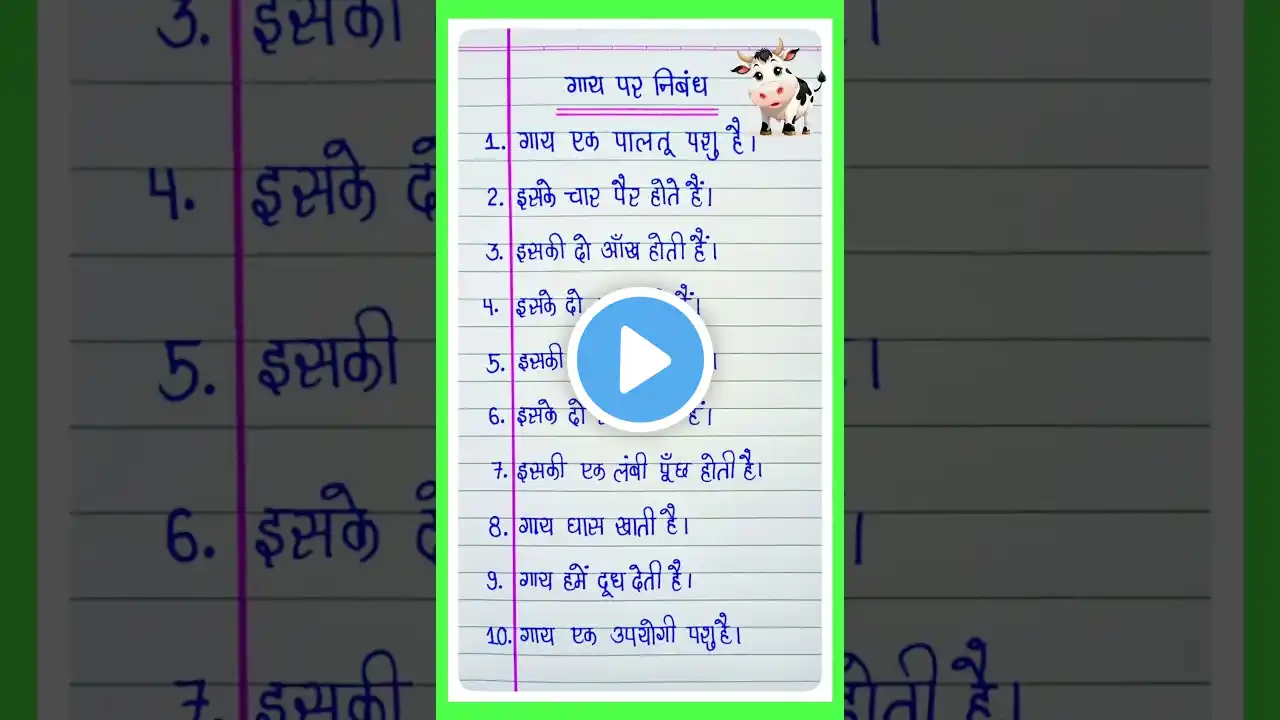 गाय पर निबंध
1. गाय एक पालतू पशु है।
2. इसके चार पैर होते हैं।
3. इसकी दो आँख होती हैं।
4. इसके दो हैं।
5. इसकी
6. इसके दो हैं।
7. इसकी एक लंबी पूँछ होती है।
8. गाय घास खाती है।
9. गाय हमें दूध देती है।
10. गाय एक उपयोगी पशु है।